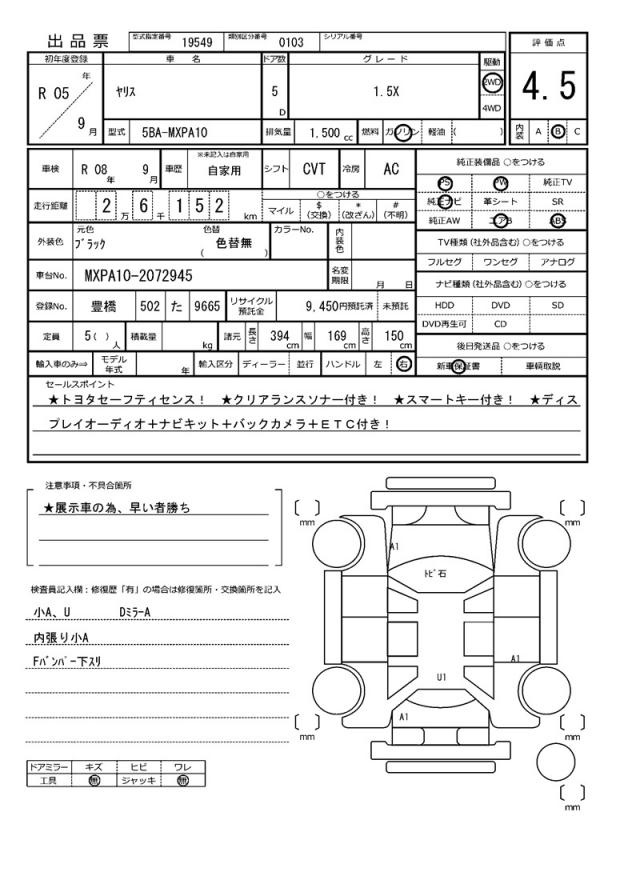 出品票 型式指定番号 19549 類別区分番号 0103 シリアル番号
評価点
4.5
内装 A B C
初年度登録 車名 ドア数 グレード 駆動
R 05 年 9 月 ヤリス 5 D 1.5X 2WD 4WD
型式 5BA-MXPA10 排気量 1.500 cc 燃料 ガソリン 軽油 ( )
車検 R 08 年 9 月 車歴 ※未記入は自家用 自家用 シフト CVT 冷房 AC
走行距離 2 万 6 千 1 5 2 km ○をつける
マイル $(交換) *(改ざん) #(不明)
外装色 元色 ブラック 色替 ( 色替無 ) カラーNo. 内装色
車台No. MXPA10-2072945 名変期限 月 日
登録No. 豊橋 502 た 9665 リサイクル預託金 9,450円預託済 未預託
定員 5( ) 人 積載量 kg 諸元 長さ 394 cm 幅 169 cm 高さ 150 cm
輸入車のみ⇒ モデル年式 年 輸入区分 ディーラー 並行 ハンドル 左 右
純正装備品 ○をつける
PS PW 純正TV
純正ナビ 革シート SR
純正AW エアB ABS
TV種類(社外品含む) ○をつける
フルセグ ワンセグ アナログ
ナビ種類(社外品含む) ○をつける
HDD DVD SD
DVD再生可 CD
後日発送品 ○をつける
新車保証書 車輌取説
セールスポイント
★トヨタセーフティセンス! ★クリアランスソナー付き! ★スマートキー付き! ★ディス
プレイオーディオ+ナビキット+バックカメラ+ETC付き!
注意事項・不具合箇所
★展示車の為、早い者勝ち
検査員記入欄:修復歴「有」の場合は修復箇所・交換箇所を記入
小A、U Dミラ-A
内張り小A
Fバンパ-下スリ
ドアミラー キズ ヒビ ワレ
工具 無 ジャッキ 無
mm
mm
A1
トビ石
A1
U1
A1
mm
mm
mm